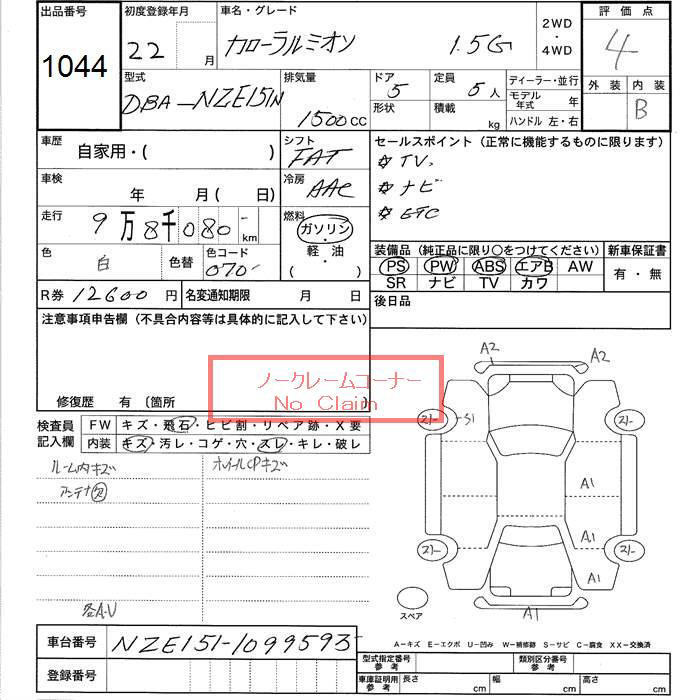 出品番号 初度登録年月 車名・グレード 2WD・4WD 評価点
1044 22 月 カローラルミオン 1.5G 4
型式 排気量 ドア 定員 ディーラー・並行 外装 内装
DBA-NZE151N 1500cc 5 5人 モデル年式 年 B
形状 積載 kg ハンドル 左・右
車歴 自家用・( ) シフト FAT セールスポイント (正常に機能するものに限ります)
☆TV.
車検 年 月( 日) 冷房 AAC ☆ナビ
☆ETC
走行 9万8千080 km 燃料 ガソリン・軽油 ( )
色 白 色替 色コード 070 装備品 (純正品に限り○をつけてください) 新車保証書
PS PW ABS エアB AW 有・無
SR ナビ TV カワ
R券 12600円 名変通知期限 月 日 後日品
注意事項申告欄 (不具合内容等は具体的に記入して下さい)
ノークレームコーナー
No Claim
修復歴 有 〔箇所
検査員記入欄 FW キズ・飛石・ヒビ割・リペア跡・X要
内装 キズ・汚レ・コゲ・穴・スレ・キレ・破レ
ルーム内キズ ホイルCPキズ
アンテナ欠
各A.U
A2 A2
S1
A1
A1
A1
スペア A1
A-キズ E-エクボ U-凹み W-補修跡 S-サビ C-腐食 XX-交換済
車台番号 NZE151-1099593
登録番号
型式指定番号 参考 類別区分番号 参考
車庫証明用 参考 長さ cm 幅 cm 高さ cm